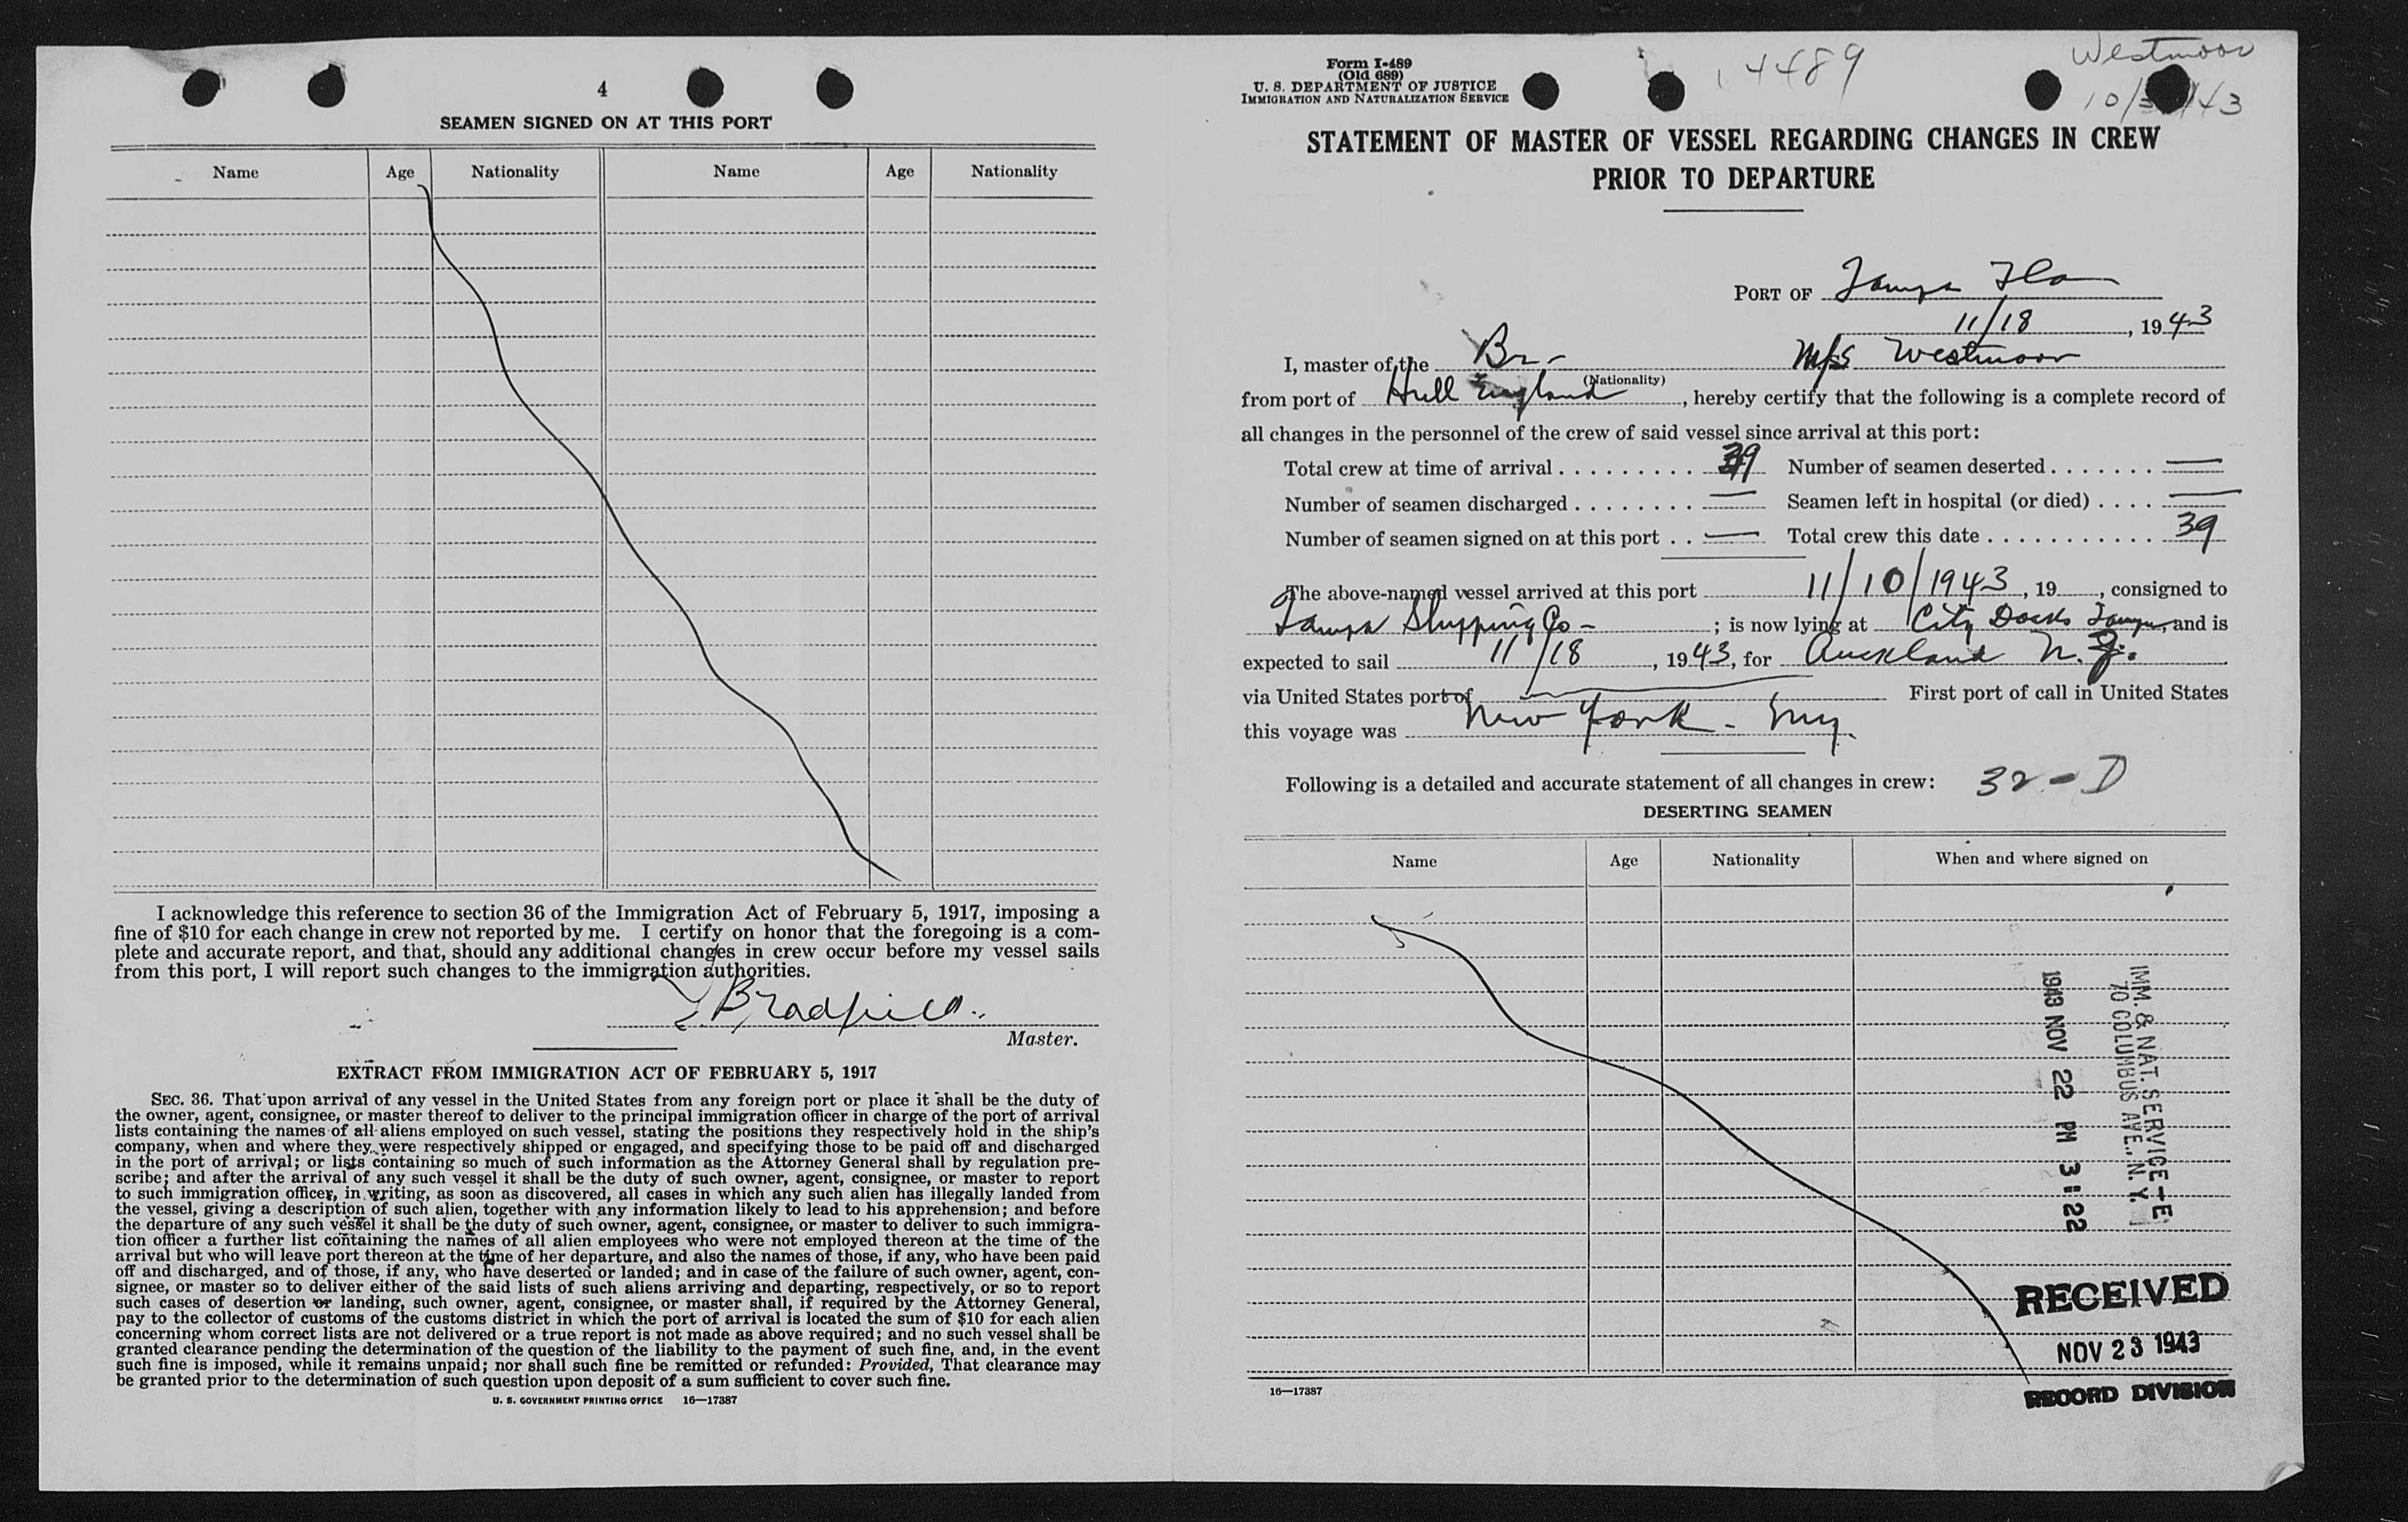 4
SEAMEN SIGNED ON AT THIS PORT
Name Age Nationality Name Age Nationality
I acknowledge this reference to section 36 of the Immigration Act of February 5, 1917, imposing a
fine of $10 for each change in crew not reported by me. I certify on honor that the foregoing is a com-
plete and accurate report, and that, should any additional changes in crew occur before my vessel sails
from this port, I will report such changes to the immigration authorities.
Bradfield.
Master.
EXTRACT FROM IMMIGRATION ACT OF FEBRUARY 5, 1917
SEC. 36. That upon arrival of any vessel in the United States from any foreign port or place it shall be the duty of
the owner, agent, consignee, or master thereof to deliver to the principal immigration officer in charge of the port of arrival
lists containing the names of all aliens employed on such vessel, stating the positions they respectively hold in the ship's
company, when and where they were respectively shipped or engaged, and specifying those to be paid off and discharged
in the port of arrival; or lists containing so much of such information as the Attorney General shall by regulation pre-
scribe; and after the arrival of any such vessel it shall be the duty of such owner, agent, consignee, or master to report
to such immigration officer, in writing, as soon as discovered, all cases in which any such alien has illegally landed from
the vessel, giving a description of such alien, together with any information likely to lead to his apprehension; and before
the departure of any such vessel it shall be the duty of such owner, agent, consignee, or master to deliver to such immigra-
tion officer a further list containing the names of all alien employees who were not employed thereon at the time of the
arrival but who will leave port thereon at the time of her departure, and also the names of those, if any, who have been paid
off and discharged, and of those, if any, who have deserted or landed; and in case of the failure of such owner, agent, con-
signee, or master so to deliver either of the said lists of such aliens arriving and departing, respectively, or so to report
such cases of desertion or landing, such owner, agent, consignee, or master shall, if required by the Attorney General,
pay to the collector of customs of the customs district in which the port of arrival is located the sum of $10 for each alien
concerning whom correct lists are not delivered or a true report is not made as above required; and no such vessel shall be
granted clearance pending the determination of the question of the liability to the payment of such fine, and, in the event
such fine is imposed, while it remains unpaid; nor shall such fine be remitted or refunded: Provided, That clearance may
be granted prior to the determination of such question upon deposit of a sum sufficient to cover such fine.
U. S. GOVERNMENT PRINTING OFFICE 16—17387
Form I-489
(Old 689)
U. S. DEPARTMENT OF JUSTICE
IMMIGRATION AND NATURALIZATION SERVICE
4489
Westmoor
10/3 /43
STATEMENT OF MASTER OF VESSEL REGARDING CHANGES IN CREW
PRIOR TO DEPARTURE
PORT OF Tampa Fla
11/18, 1943
I, master of the Br- M/S Westmoor
(Nationality)
from port of Hull England, hereby certify that the following is a complete record of
all changes in the personnel of the crew of said vessel since arrival at this port:
Total crew at time of arrival . . . . . . . . . . 39 Number of seamen deserted . . . . . . . —
Number of seamen discharged . . . . . . . . — Seamen left in hospital (or died) . . . . —
Number of seamen signed on at this port . . — Total crew this date . . . . . . . . . . . . 39
The above-named vessel arrived at this port 11/10/1943, 19 , consigned to
Tampa Shipping Co - ; is now lying at City Docks Tampa, and is
expected to sail 11/18, 1943, for Auckland N. Z.
via United States port of — First port of call in United States
this voyage was New York - Ny.
Following is a detailed and accurate statement of all changes in crew: 32 - D
DESERTING SEAMEN
Name Age Nationality When and where signed on
IMM. & NAT. SERVICE-E
70 COLUMBUS AVE., N.Y.
1943 NOV 22 PM 3:22
RECEIVED
NOV 23 1943
RECORD DIVISION
16—17387